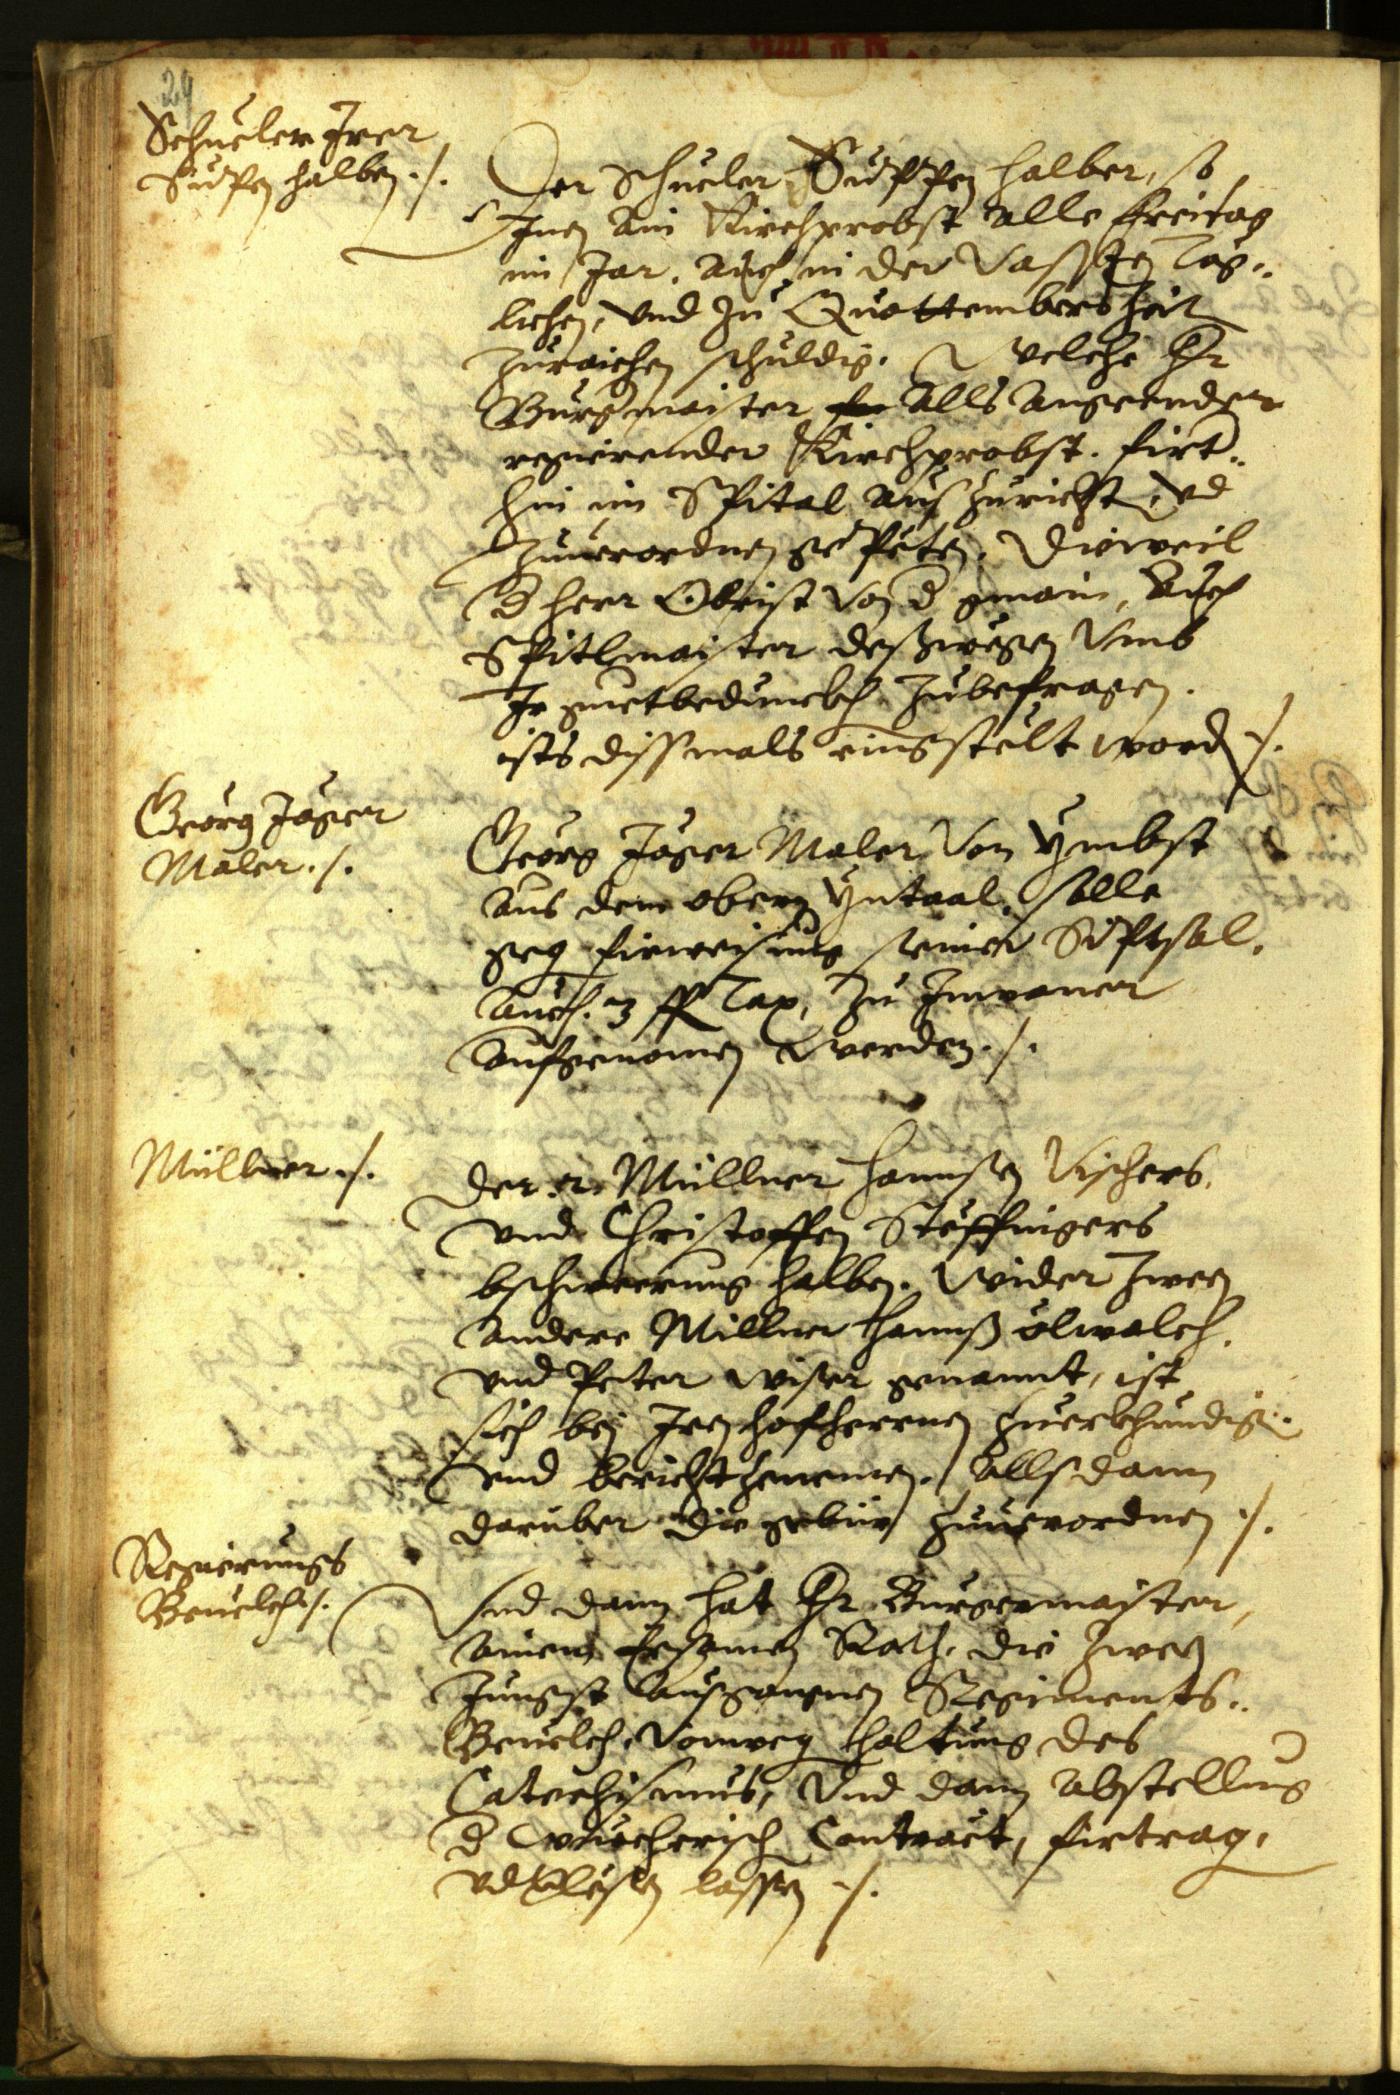 29
Schueler Irer
Suppen halben ./.
Der Schueler Suppen halber, so
Inen ain Kirchprobst alle Freitag
im Jar, auch in der Vassten Täg-
lichen, vnd zu Quottembers Zeit
zuraichen schuldig. Welche Hr
Burgmaister alls angeender
regierender Kirchprobst. firt-
hin im Spital auszuricht, vd
zuuerordnen gepeten. Dieweil
d herr Obrist von d gmain, auch
Spitlmaister desswegen vmb
Ir guetbedunckh zubefragen.
ists dissmals eingstelt word ./.
Georg Jäger
Maler ./.
Georg Jäger Maler von Ymbst
aus dem obern Yntaal, solle
geg firweisung seiner
auch. 3 ff Tax, zu Inwoner
aufgenomen werden ./.
Müllner ./.
Der .2. Müllner Hannsen Vischers,
vnd Christoffen Steffingers
bschwerung halben. wider zween
andere Millner Hannss ölwalch,
vnd Peter wiser genannt, ist
sich bej Iren hofherrnen zuerkhundig
vnd bericht zenemen. Allsdann
daruber die gebür zuuerordnen ./.
Regierungs
Beuelch ./.
Vnd dann hat Hr Burgermaister,
ainem Ersamen Rath, die zween
Jungst ausgangnen Regiments-
Beuelch, vonweg haltung des
Catechismus, vnd dann abstellung
d wuecherisch Contract, firtrag,
vd lesen lassen ./.